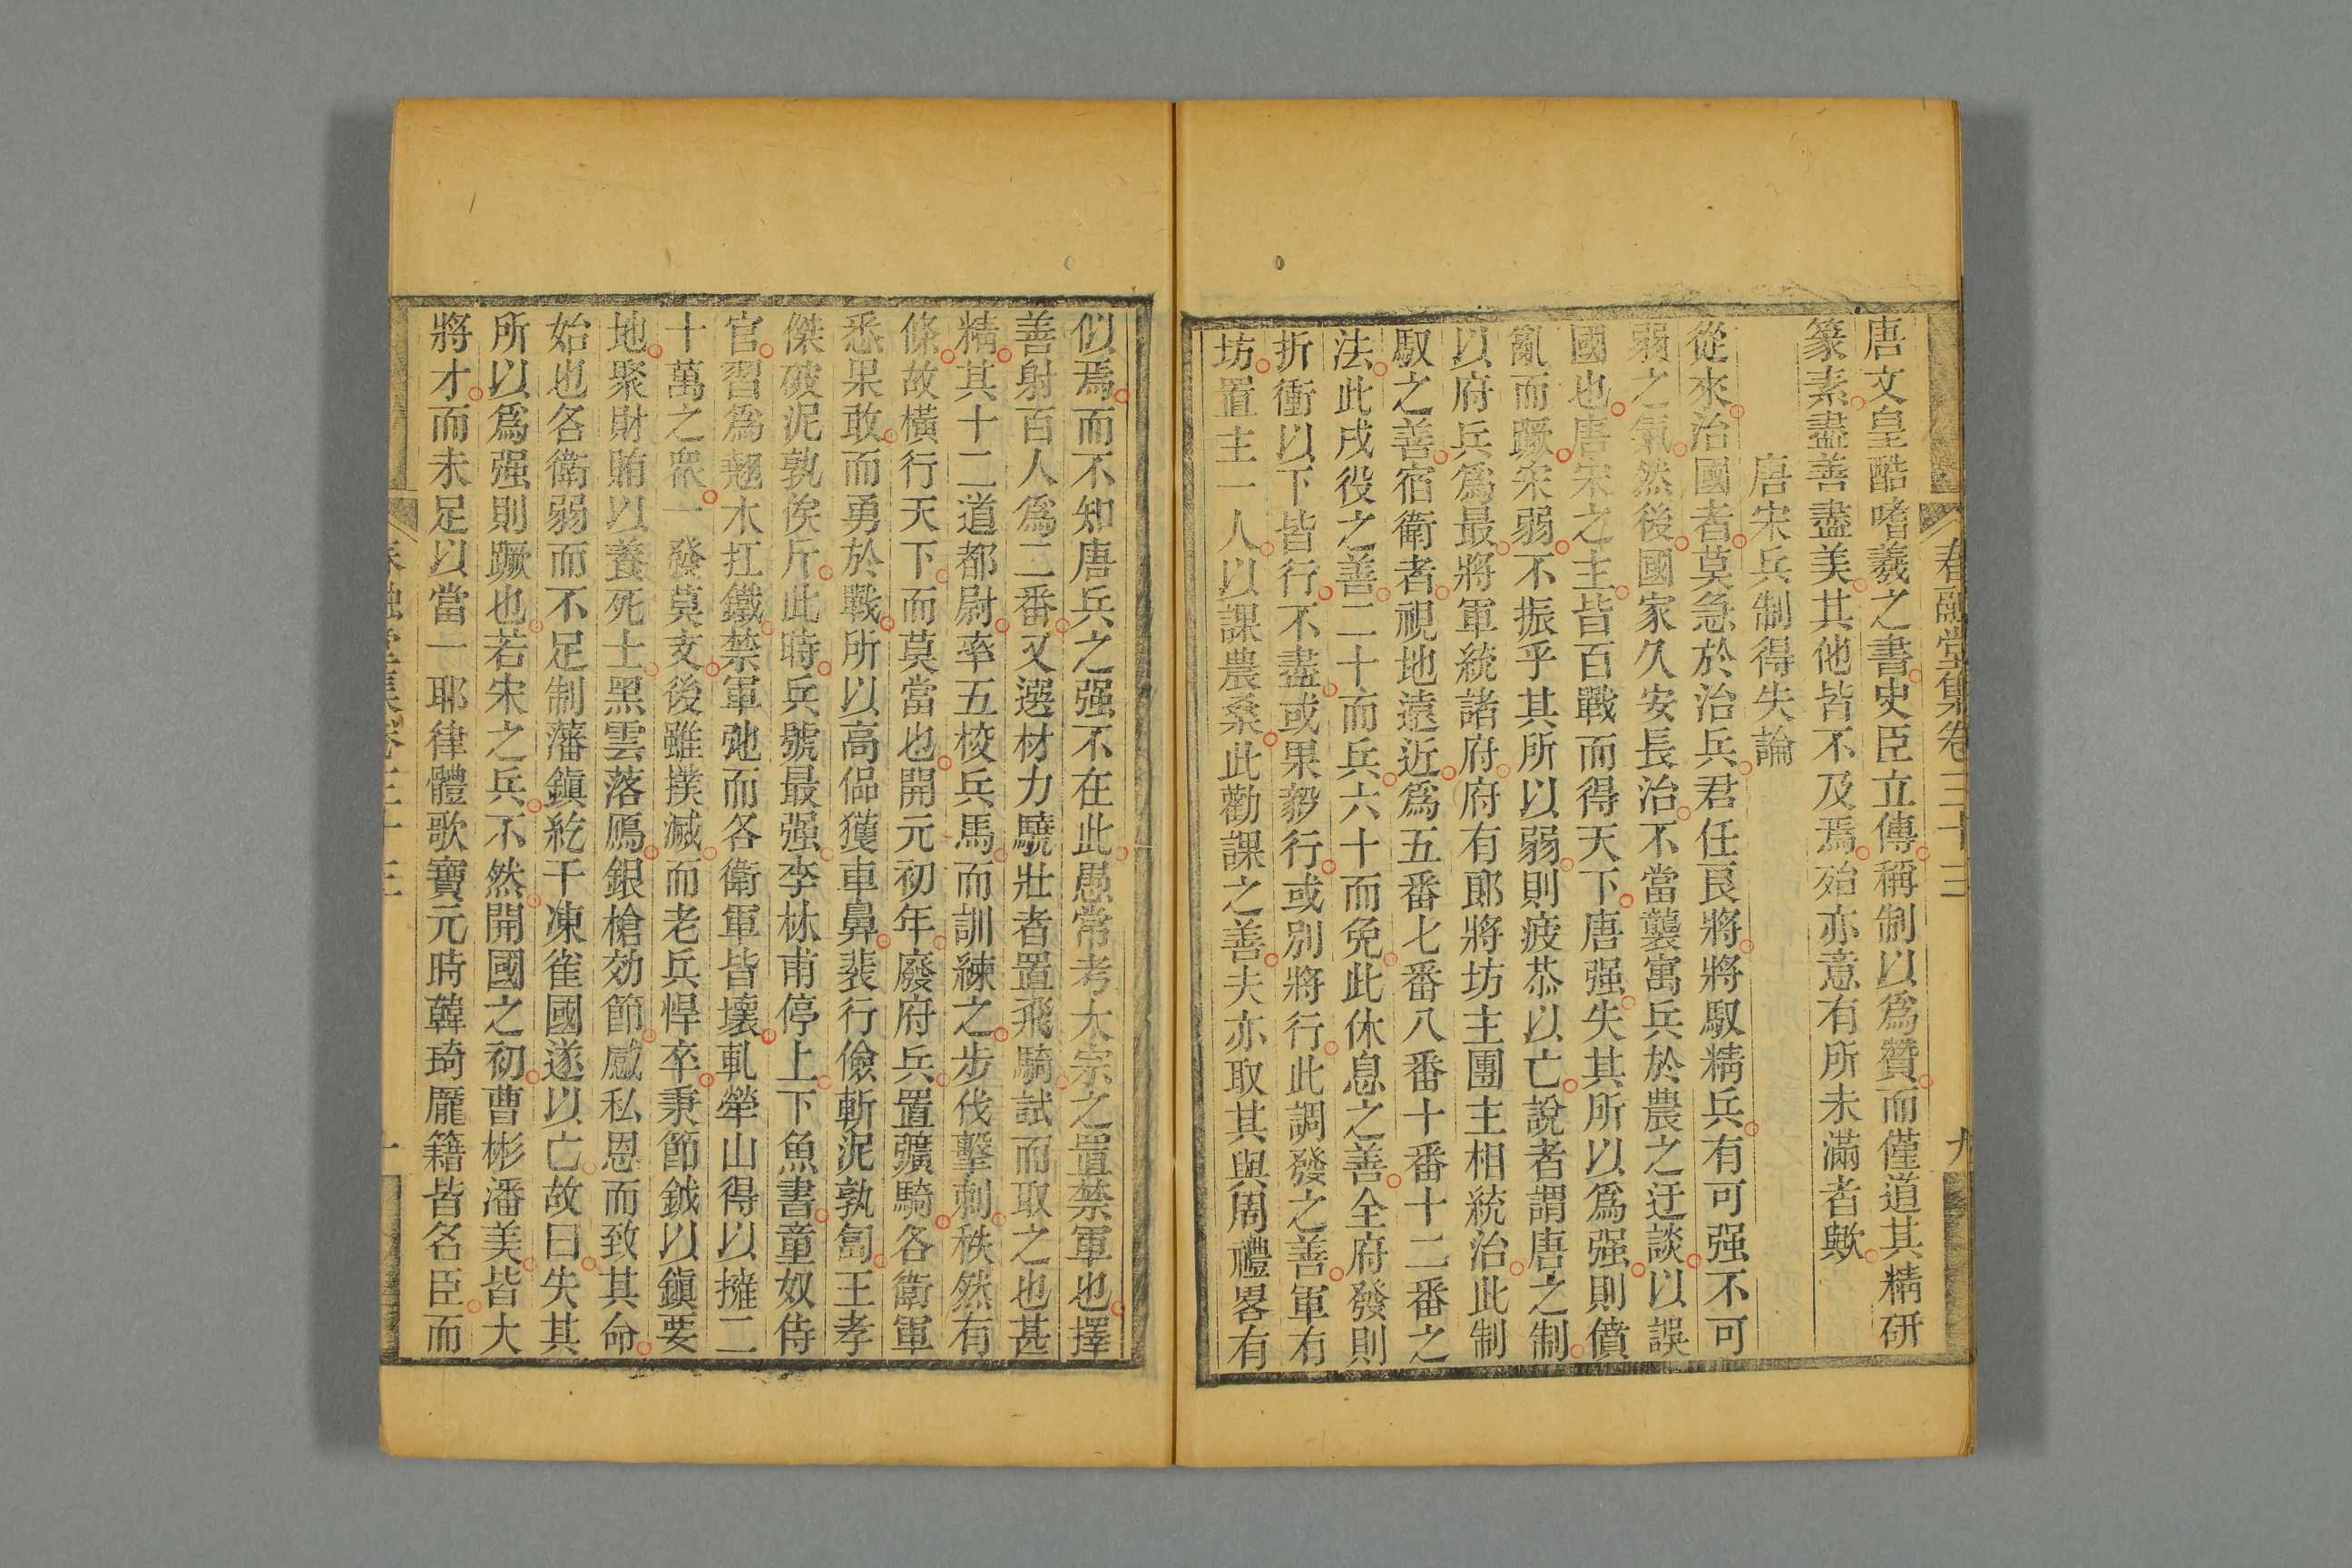 春融堂集卷三十三
九
唐文皇酷嗜羲之書史臣立傳稱制以爲贊而僅道其精研
篆素盡善盡美其他皆不及焉殆亦意有所未滿者歟
唐宋兵制得失論
從來治國者莫急於治兵君任良將將馭精兵有可强不可
弱之氣然後國家久安長治不當襲寓兵於農之迂談以誤
國也唐宋之主皆百戰而得天下唐强失其所以爲强則僨
亂而蹶宋弱不振乎其所以弱則疲苶以亡說者謂唐之制
以府兵爲最將軍統諸府府有郎將坊主團主相統治此制
馭之善宿衛者視地遠近爲五番七番八番十番十二番之
法此戍役之善二十而兵六十而免此休息之善全府發則
折衝以下皆行不盡或果毅行或別將行此調發之善軍有
坊置主一人以課農桑此勸課之善夫亦取其與周禮畧有
似焉而不知唐兵之强不在此愚常考太宗之置禁軍也擇
善射百人爲二番又選材力驍壯者置飛騎試而取之也甚
精其十二道都尉率五校兵馬而訓練之步伐擊刺秩然有
條故橫行天下而莫當也開元初年廢府兵置彍騎各衛軍
悉果敢而勇於戰所以高偘獲車鼻裴行儉斬泥孰匐王孝
傑破泥孰俟斤此時兵號最强李林甫停上下魚書童奴侍
官習爲翹木扛鐵禁軍弛而各衛軍皆壞軋犖山得以擁二
十萬之衆一發莫支後雖撲滅而老兵悍卒秉節鉞以鎭要
地聚財賄以養死士黑雲落鴈銀槍効節感私恩而致其命
始也各衛弱而不足制藩鎭紇干凍雀國遂以亡故曰失其
所以爲强則蹶也若宋之兵不然開國之初曹彬潘美皆大
將才而未足以當一耶律體歌寶元時韓琦龎籍皆名臣而